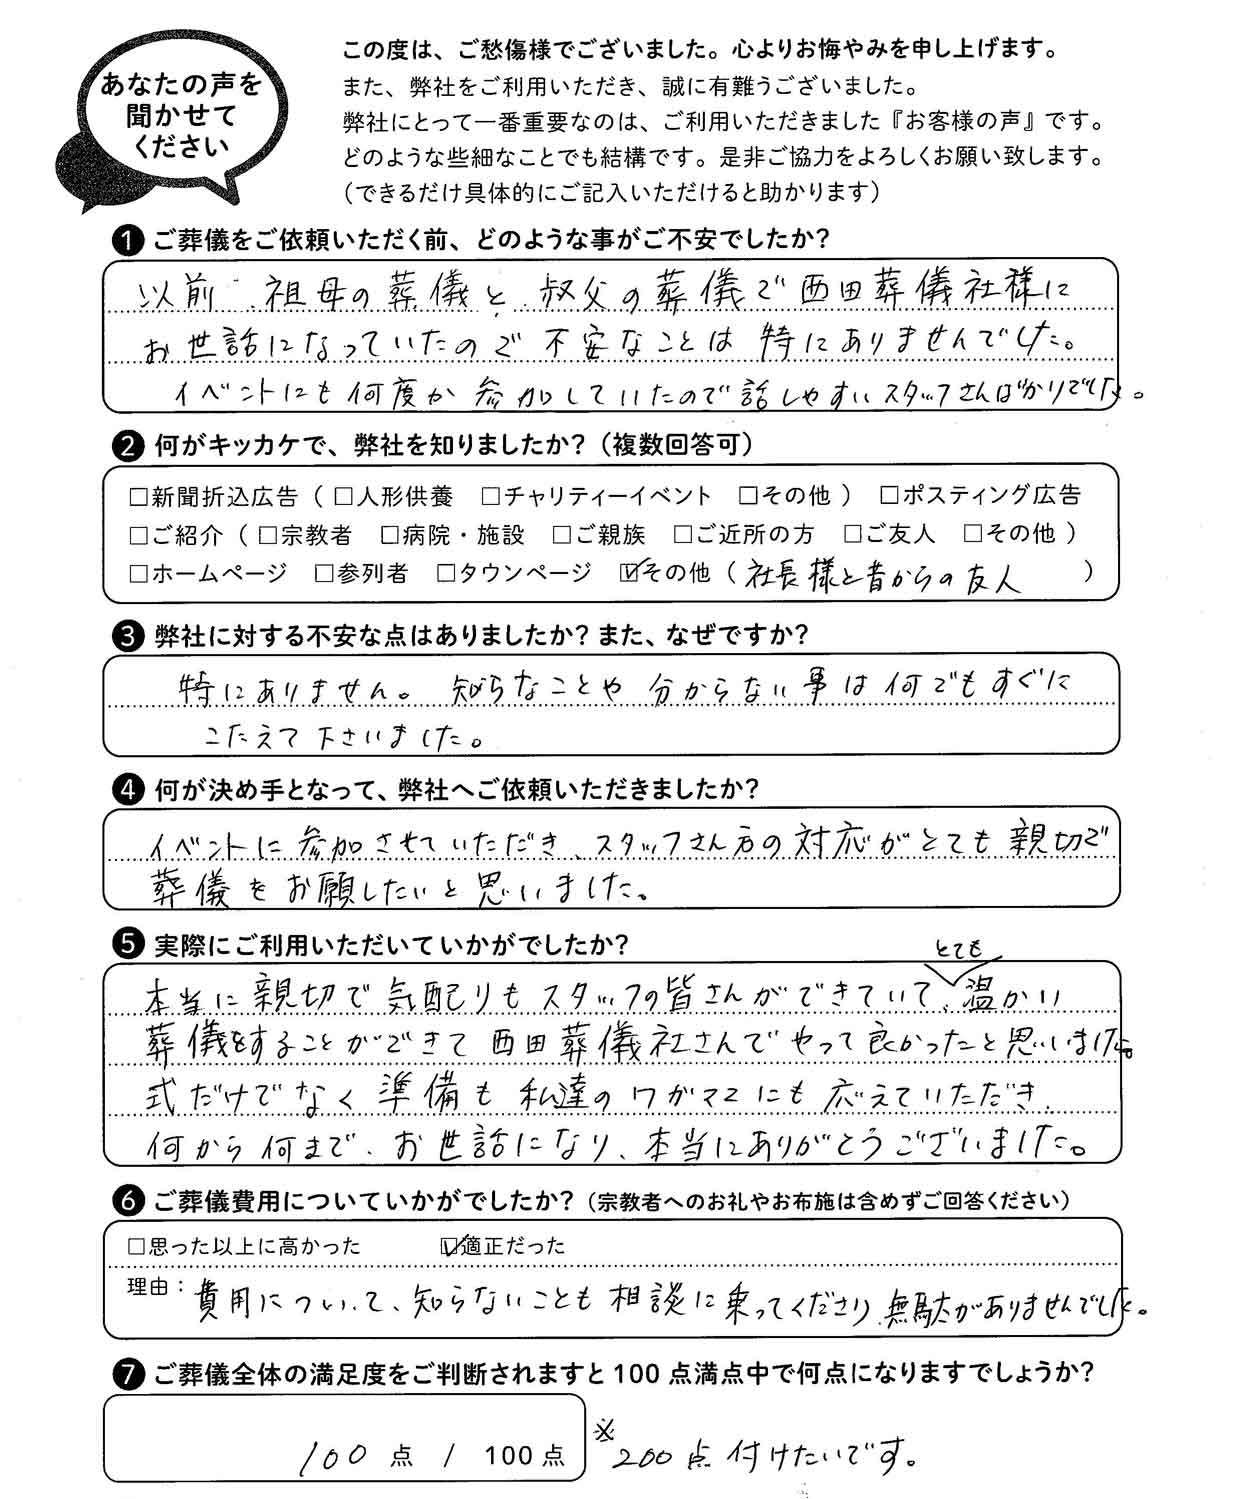 あなたの声を
聞かせて
ください
この度は、ご愁傷様でございました。心よりお悔やみを申し上げます。
また、弊社をご利用いただき、誠に有難うございました。
弊社にとって一番重要なのは、ご利用いただきました『お客様の声』です。
どのような些細なことでも結構です。是非ご協力をよろしくお願い致します。
（できるだけ具体的にご記入いただけると助かります）
❶ ご葬儀をご依頼いただく前、どのような事がご不安でしたか？
以前、祖母の葬儀と、叔父の葬儀で西田葬儀社様に
お世話になっていたので不安なことは特にありませんでした。
イベントにも何度か参加していたので話しやすいスタッフさんばかりでした。
❷ 何がキッカケで、弊社を知りましたか？（複数回答可）
□新聞折込広告（□人形供養 □チャリティーイベント □その他） □ポスティング広告
□ご紹介（□宗教者 □病院・施設 □ご親族 □ご近所の方 □ご友人 □その他）
□ホームページ □参列者 □タウンページ ☑その他（社長様と昔からの友人）
❸ 弊社に対する不安な点はありましたか？また、なぜですか？
特にありません。知らなことや分からない事は何でもすぐに
こたえて下さいました。
❹ 何が決め手となって、弊社へご依頼いただきましたか？
イベントに参加させていただき、スタッフさん方の対応がとても親切で
葬儀をお願したいと思いました。
❺ 実際にご利用いただいていかがでしたか？
とても
本当に親切で気配りもスタッフの皆さんができていて、温かい
葬儀をすることができて西田葬儀社さんでやって良かったと思いました。
式だけでなく準備も私達のワガママにも応えていただき、
何から何まで、お世話になり、本当にありがとうございました。
❻ ご葬儀費用についていかがでしたか？（宗教者へのお礼やお布施は含めずご回答ください）
□思った以上に高かった ☑適正だった
理由：費用について、知らないことも相談に乗ってくださり、無駄がありませんでした。
❼ ご葬儀全体の満足度をご判断されますと100点満点中で何点になりますでしょうか？
100点 / 100点 ※200点付けたいです。